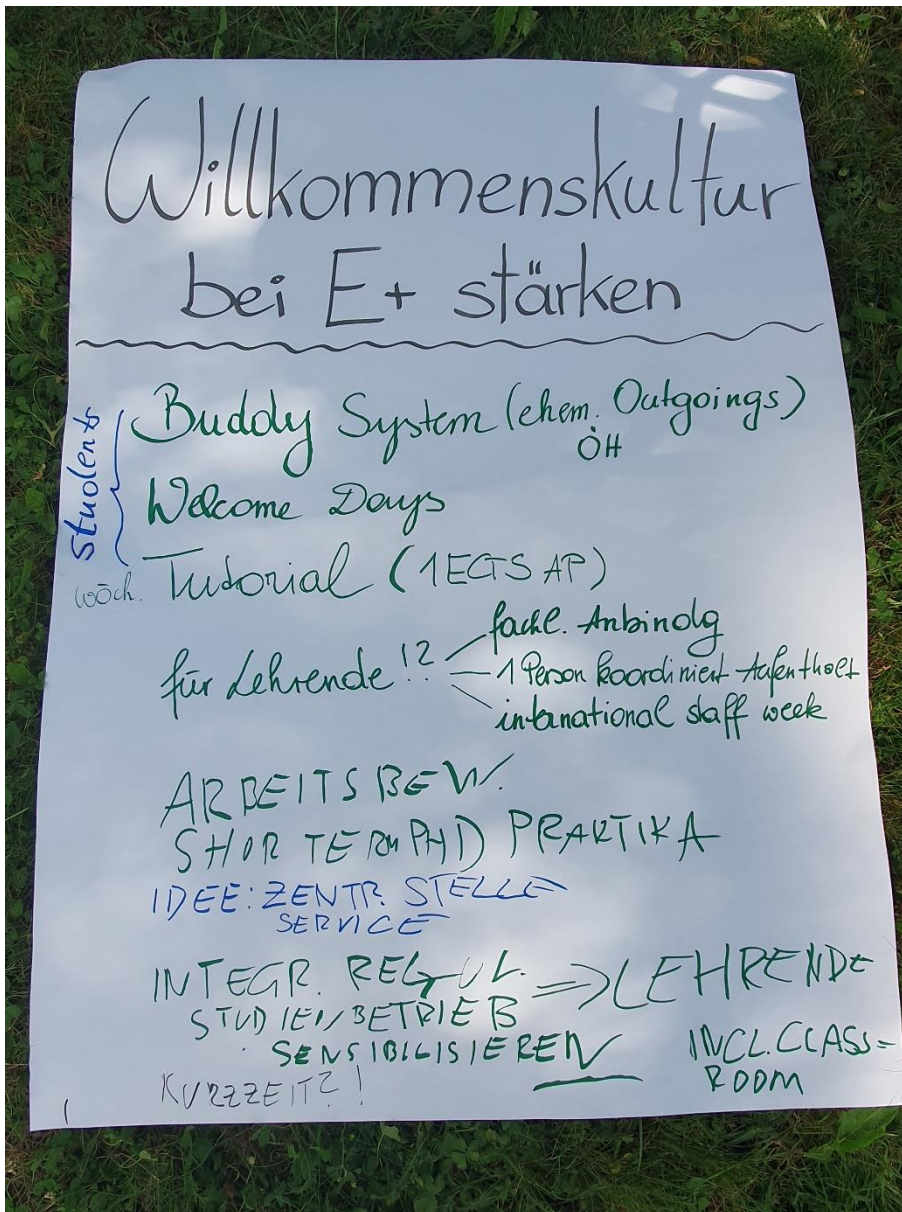 Willkommenskultur
bei E+ stärken
Students
Buddy System (ehem. Outgoings)
ÖH
Welcome Days
wöch. Tutorial (1 ECTS AP)
für Lehrende!?
fachl. Anbindg
1 Person koordiniert Aufenthalt
international staff week
ARBEITSBEW.
SHORTTERM PHD PRAKTIKA
IDEE: ZENTR. STELLE
SERVICE
INTEGR. REGUL. => LEHRENDE
STUDIEN/BETRIEB
SENSIBILISIEREN
INCL. CLASS=
ROOM
KURZZEIT?!